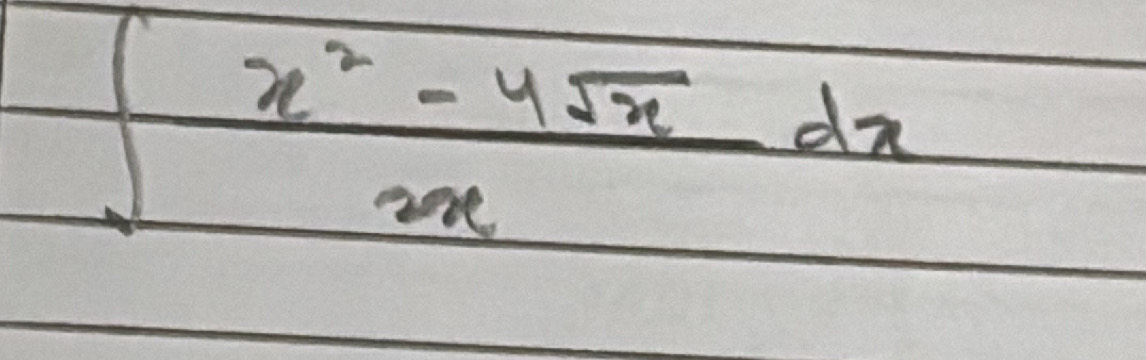 ∫ (x² - 4√x) / 2x dx